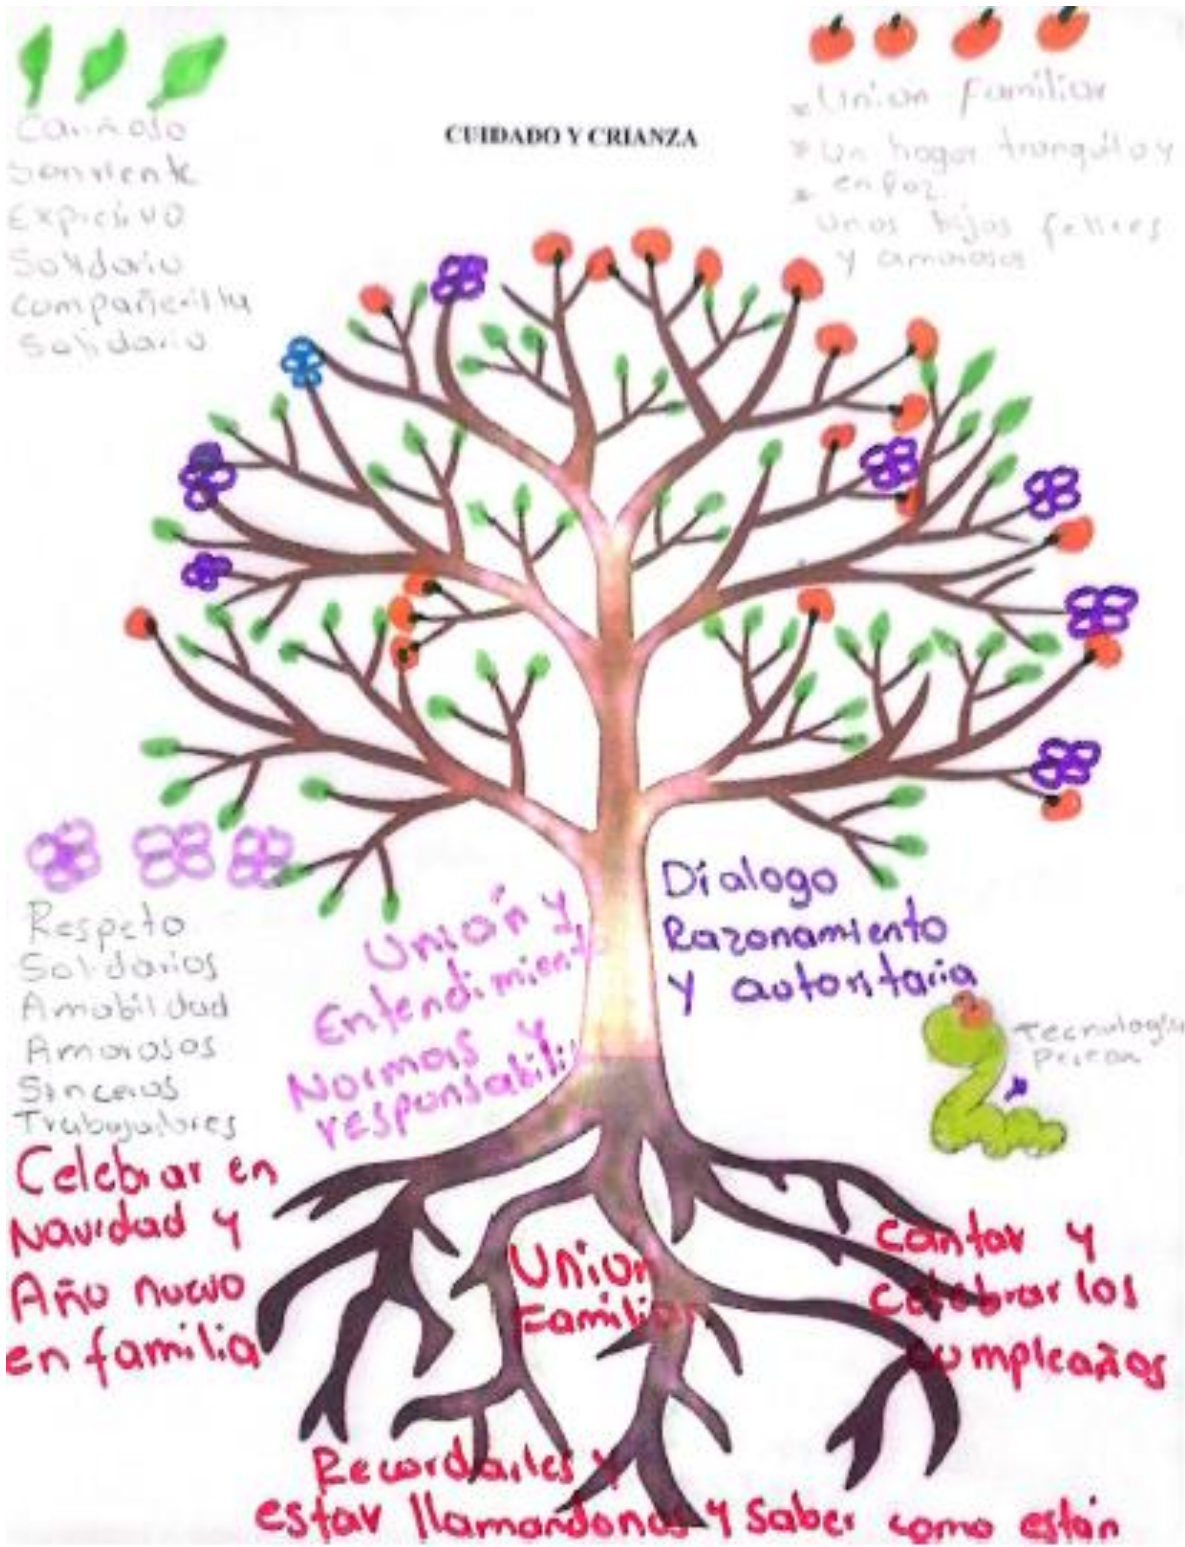 CUIDADO Y CRIANZA
Cariñoso
Sonriente
Expresivo
Solidario
Compañerista
Solidario
* Union Familiar
* Un hogar tranquilo y
* en paz.
Unos hijos felices
y amorosos
Respeto
Solidarios
Amabilidad
Amorosos
Sinceros
Trabajadores
Unión y
Entendimiento
Normas y
responsabili
Dialogo
Razonamiento
y autoritaria
Tecnologia
Celebrar en
Navidad y
Año nuevo
en familia
Union
Familiar
Cantar y
celebrar los
cumpleaños
Recordarles y
estar llamandonos y saber como están